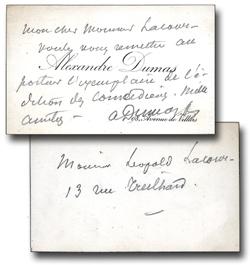 Mon cher Monsieur Lacour-
voulez vous remettre au
Alexandre Dumas
porteur l'exemplaire de l'é-
dition des comédiens. Mille
amitiés -
A Dumas f.
98, Avenue de Villiers
Monsieur Léopold Lacour-
13 rue Treilhard